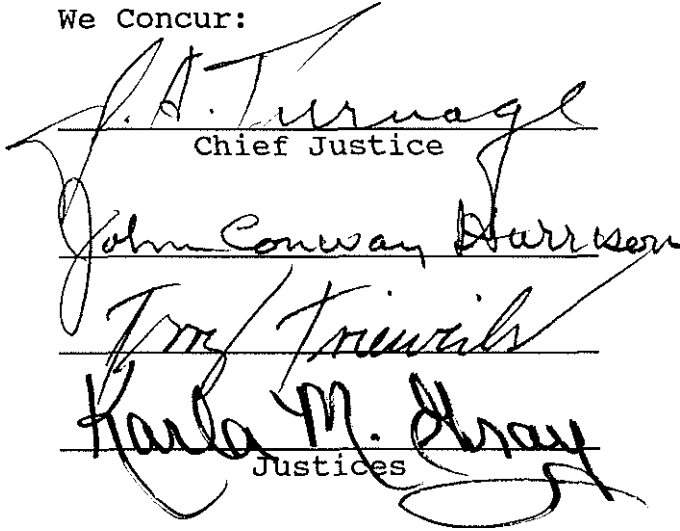 We Concur:
J. A. Turnage
Chief Justice
John Conway Harrison
Terry Trieweiler
Karla M. Gray
Justices